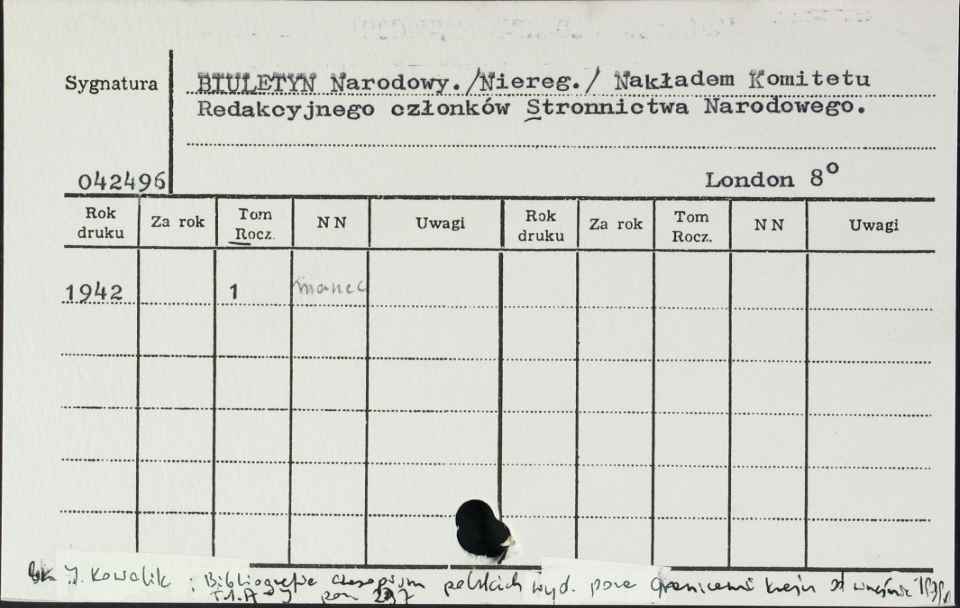 Sygnatura
BIULETYN Narodowy./Niereg./ Nakładem Komitetu
Redakcyjnego członków Stronnictwa Narodowego.
042496
London 8°
Rok druku Za rok Tom Rocz. NN Uwagi Rok druku Za rok Tom Rocz. NN Uwagi
1942 1
J. Kowalik : Bibliografia czasopism polskich wyd. poza granicami kraju od września 1939